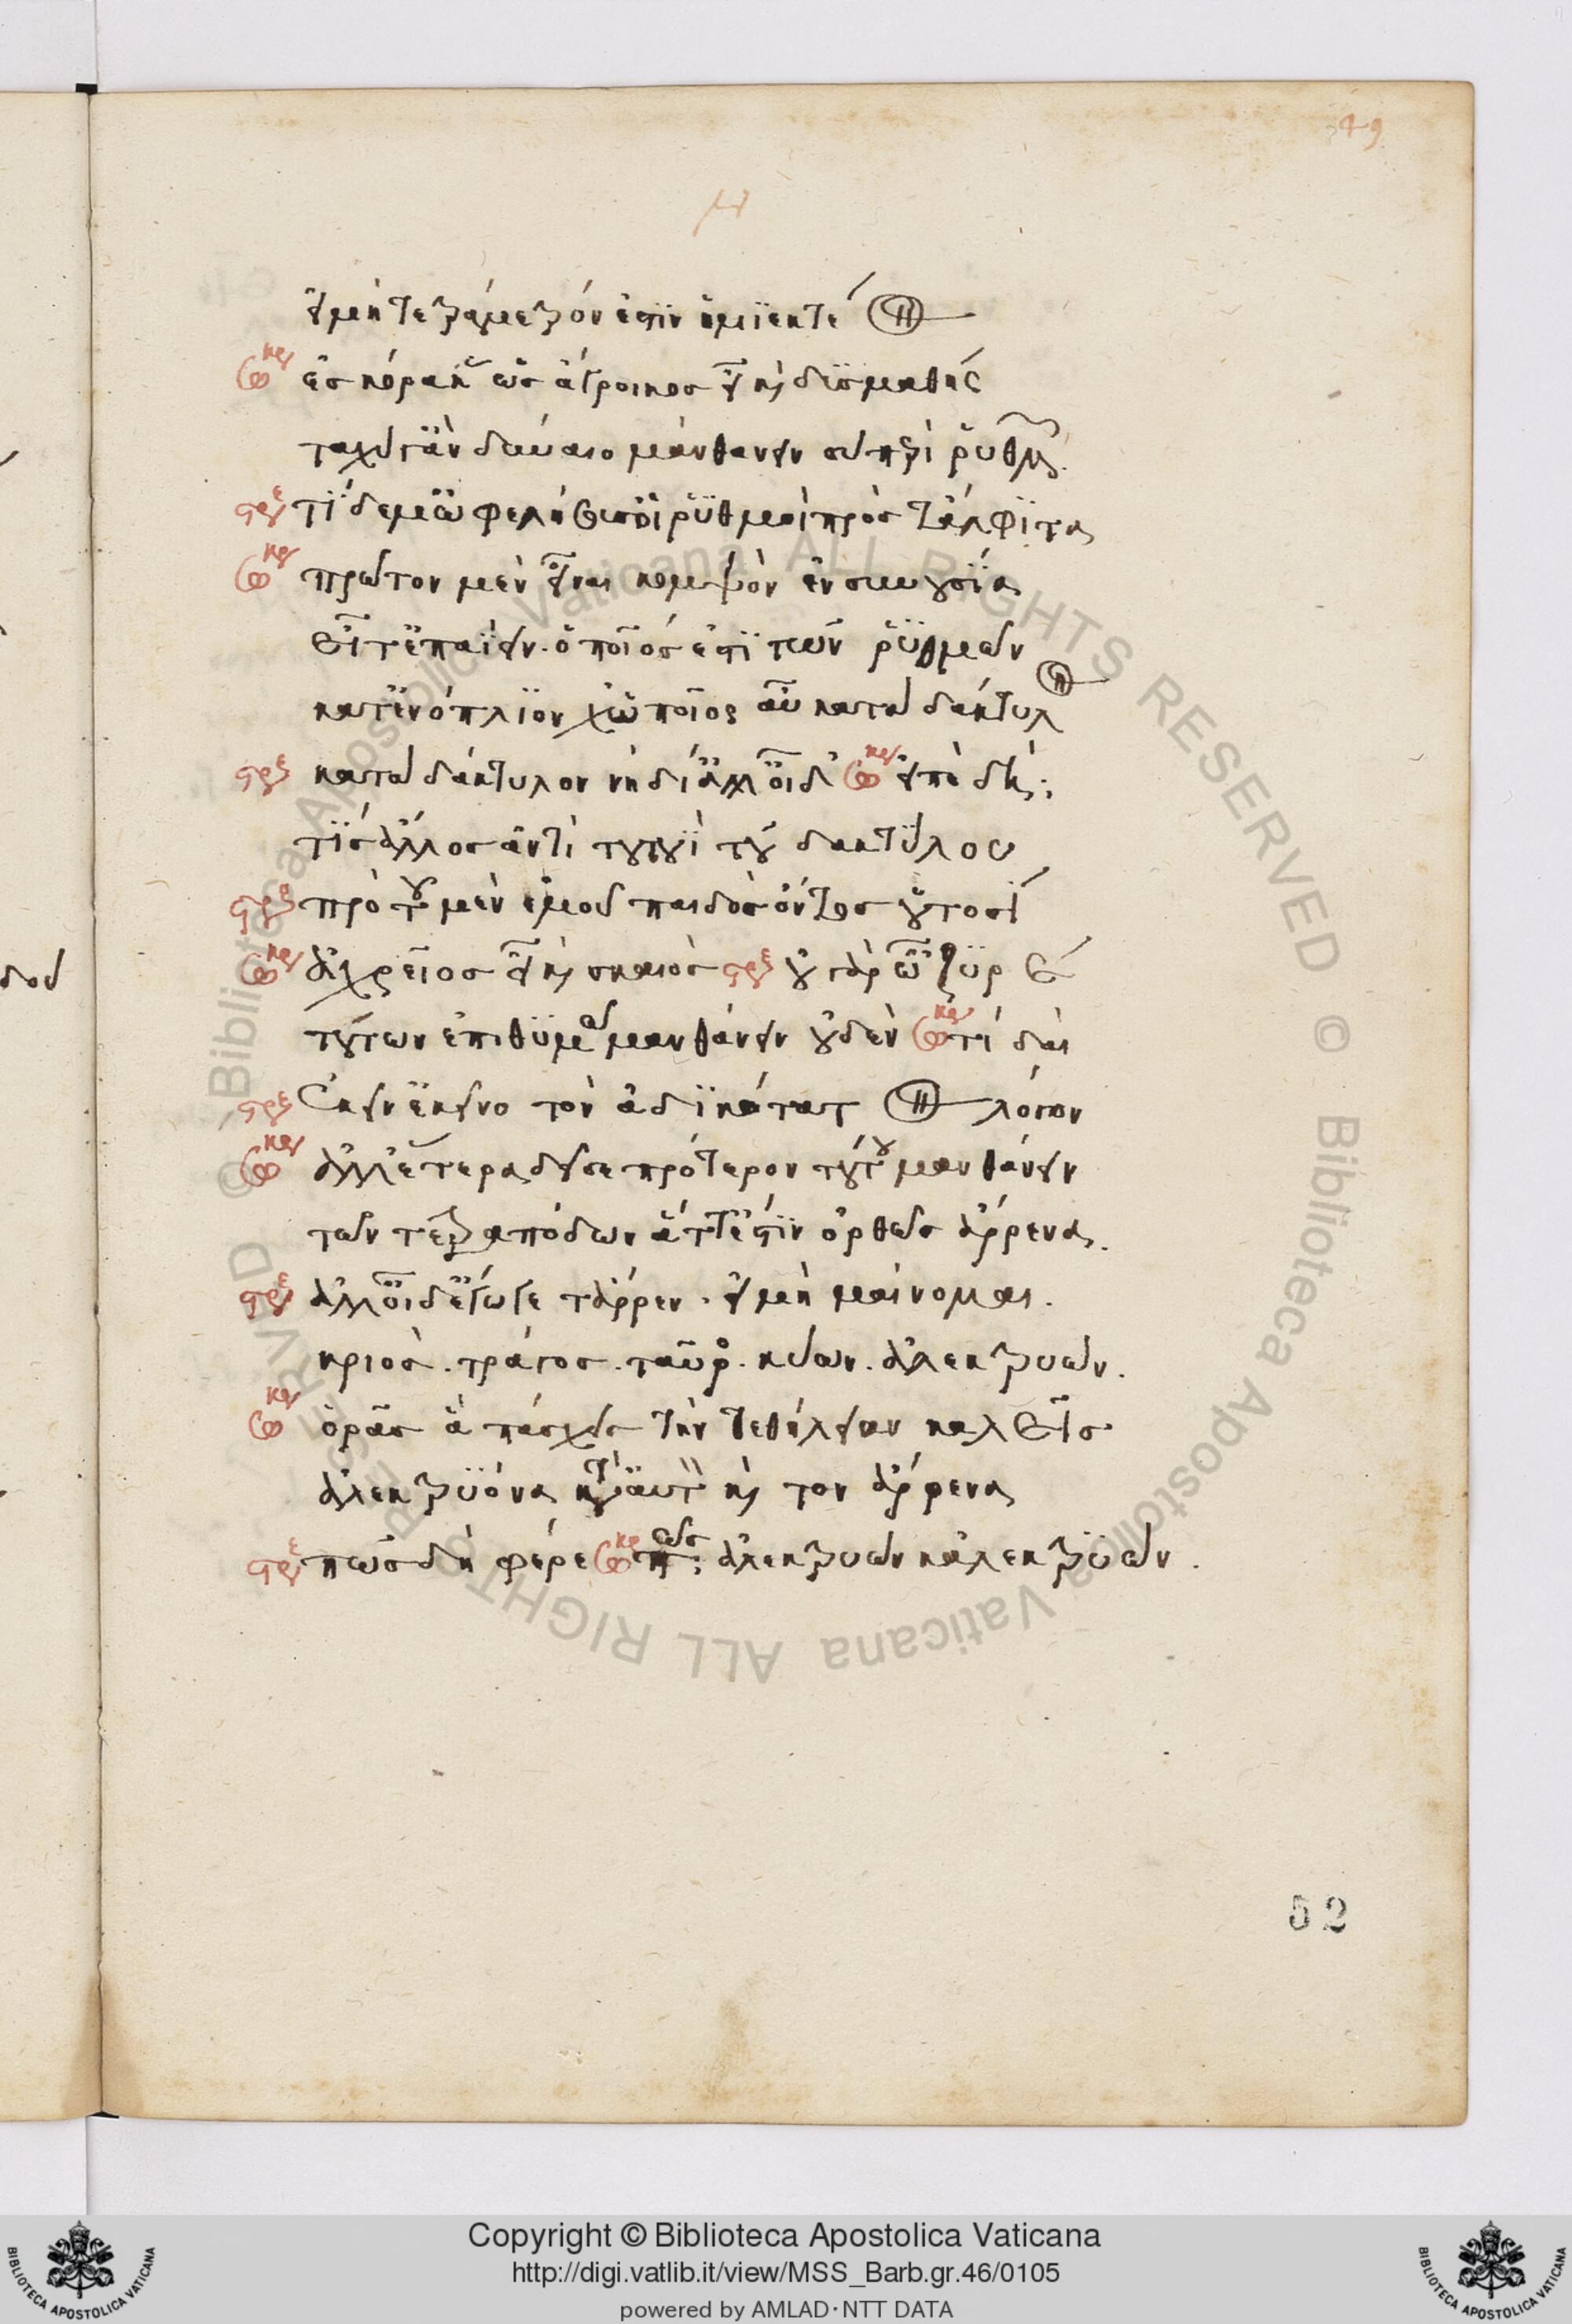 49
εἰ μὴ τετράμετρόν ἐστιν ἡμιεκτέ
σωκρ ἐς κόρακ ὡς ἄγροικος εἶ καὶ δυσμαθής
ταχύ γ' ἂν δύναιο μανθάνειν σὺ περὶ ῥυθμῶν.
στρε τί δέ μ' ὠφελήσουσ' οἱ ῥυθμοὶ πρὸς τἄλφιτα
σωκρ πρῶτον μὲν εἶναι κομψὸν ἐν συνουσία
εἶτ' ἐπαΐειν. ὁποῖός ἐστι τῶν ῥυθμῶν
κατ' ἐνόπλιον χὠποῖος αὖ κατὰ δάκτυλ
στρε κατὰ δάκτυλον νὴ δί' ἀλλ' οἶδ' σωκρ εἰπὲ δή;
τίς ἄλλος ἀντὶ τουτουῒ τοῦ δακτύλου
στρε πρὸ τοῦ μὲν ἐμοῦ παιδὸς ὄντος οὑτοσί
σωκρ ἀχρεῖος εἶ καὶ σκαιός στρε οὐ γὰρ ὦζυρέ
τούτων ἐπιθυμῶ μανθάνειν οὐδέν σωκρ τί δαί
στρε ἐκεῖν' ἐκεῖνο τὸν ἀδικώτατ λόγον
σωκρ ἀλλ' ἕτερα δεῖ σε πρότερον τούτου μανθάνειν
τῶν τετραπόδων ἅττ' ἐστιν ὀρθῶς ἄρρενα.
στρε ἀλλ' οἶδ' ἔγωγε τἄρρεν. εἰ μὴ μαίνομαι.
κριός. τράγος. ταῦρος. κύων. ἀλεκτρυών.
σωκρ ὁρᾶς ἃ πάσχεις τήν τε θήλειαν καλεῖς
ἀλεκτρυόνα κατὰ αὐτὸ καὶ τον ἄρρενα
στρε πῶς δὴ φέρε σωκρ πῶς; ἀλεκτρυὼν κἀλεκτρυών.
52
Copyright © Biblioteca Apostolica Vaticana
http://digi.vatlib.it/view/MSS_Barb.gr.46/0105
powered by AMLAD·NTT DATA
BIBLIOTECA APOSTOLICA VATICANA
BIBLIOTECA APOSTOLICA VATICANA
© Biblioteca Apostolica Vaticana ALL RIGHTS RESERVED © Biblioteca Apostolica Vaticana ALL RIGHTS RESERVED